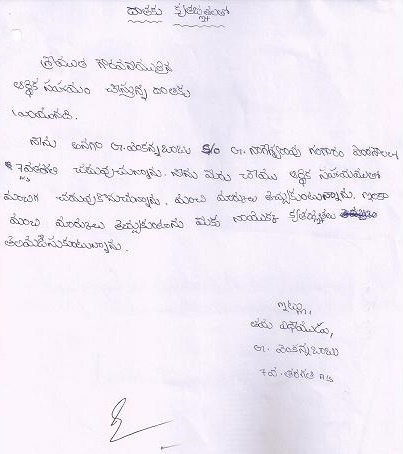 దాతకు కృతజ్ఞతలతో
శ్రీయుత గౌరవనీయులైన
ఆర్థిక సహాయం చేస్తున్న దాతకు
నేను అనగా G. వెంకన్నబాబు S/o G. నాగేశ్వరరావు
7వ తరగతి చదువుచున్నాను. నేను మీరు చేయు ఆర్థిక సహాయముతో
మంచిగా చదువుకొనుచున్నాను. మంచి మార్కులు తెచ్చుకుంటున్నాను. ఇంకా
మంచి మార్కులు తెచ్చుకుంటాను మీకు నాయొక్క కృతజ్ఞతలు
తెలియజేసుకుంటున్నాను.
ఇట్లు,
తమ విధేయుడు,
G. వెంకన్నబాబు
7వ తరగతి